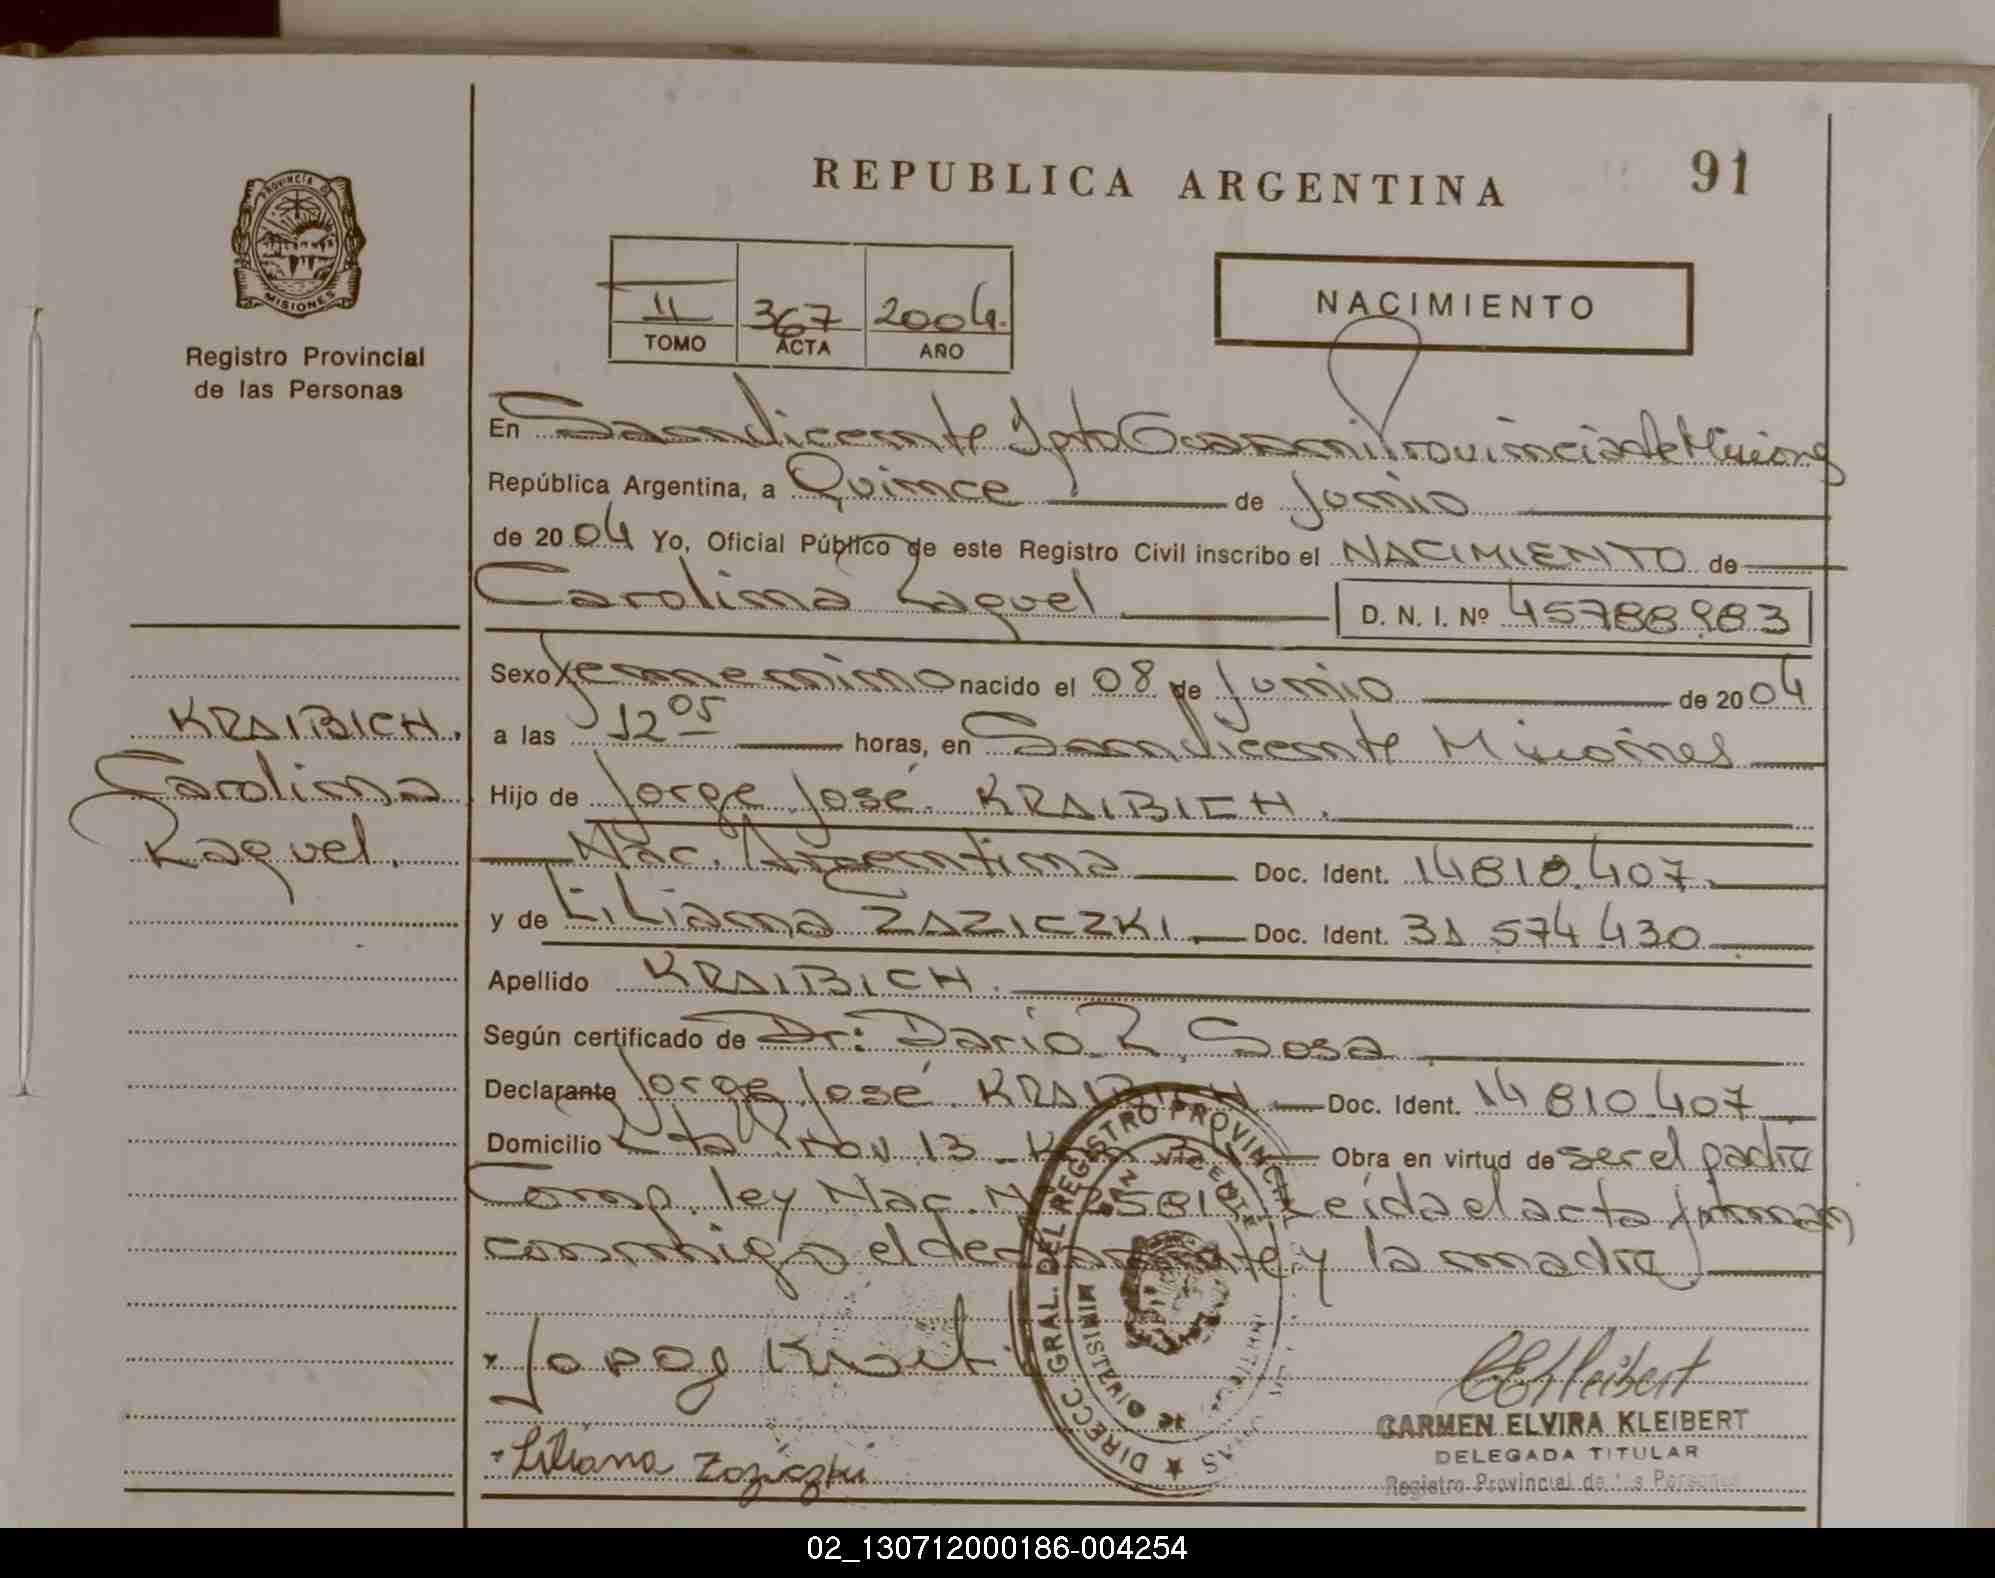 REPUBLICA ARGENTINA
91
PROVINCIA DE
MISIONES
Registro Provincial
de las Personas
II 367 2004.
TOMO ACTA AÑO
NACIMIENTO
En San Vicente Dpto Guaraní Provincia de Misiones
República Argentina, a Quince de Junio
de 2004 Yo, Oficial Público de este Registro Civil inscribo el NACIMIENTO de
Carolina Raquel D. N. I. Nº 45788983
Sexo femenino nacido el 08 de Junio de 2004
a las 12 05 horas, en San Vicente Misiones
Hijo de Jorge José KRAIBICH.
Nac. Argentina Doc. Ident. 14810.407.
y de Liliana ZAZICZKI Doc. Ident. 31 574 430
Apellido KRAIBICH.
Según certificado de Dr: Dario R. Sosa
Declarante Jorge José KRAIBICH Doc. Ident. 14 810 407
Domicilio Rta Prov 13 - Km Obra en virtud de ser el padre
Comp. ley Nac. Nº Leida el acta firman
conmigo el declarante y la madre
KRAIBICH.
Carolina
Raquel.
DIRECC. GRAL. DEL REGISTRO PROVINCIAL
SAN VICENTE
MINISTERIO DE
Liliana Zaziczki
CEKleibert
CARMEN ELVIRA KLEIBERT
DELEGADA TITULAR
Registro Provincial de las Personas
02_130712000186-004254